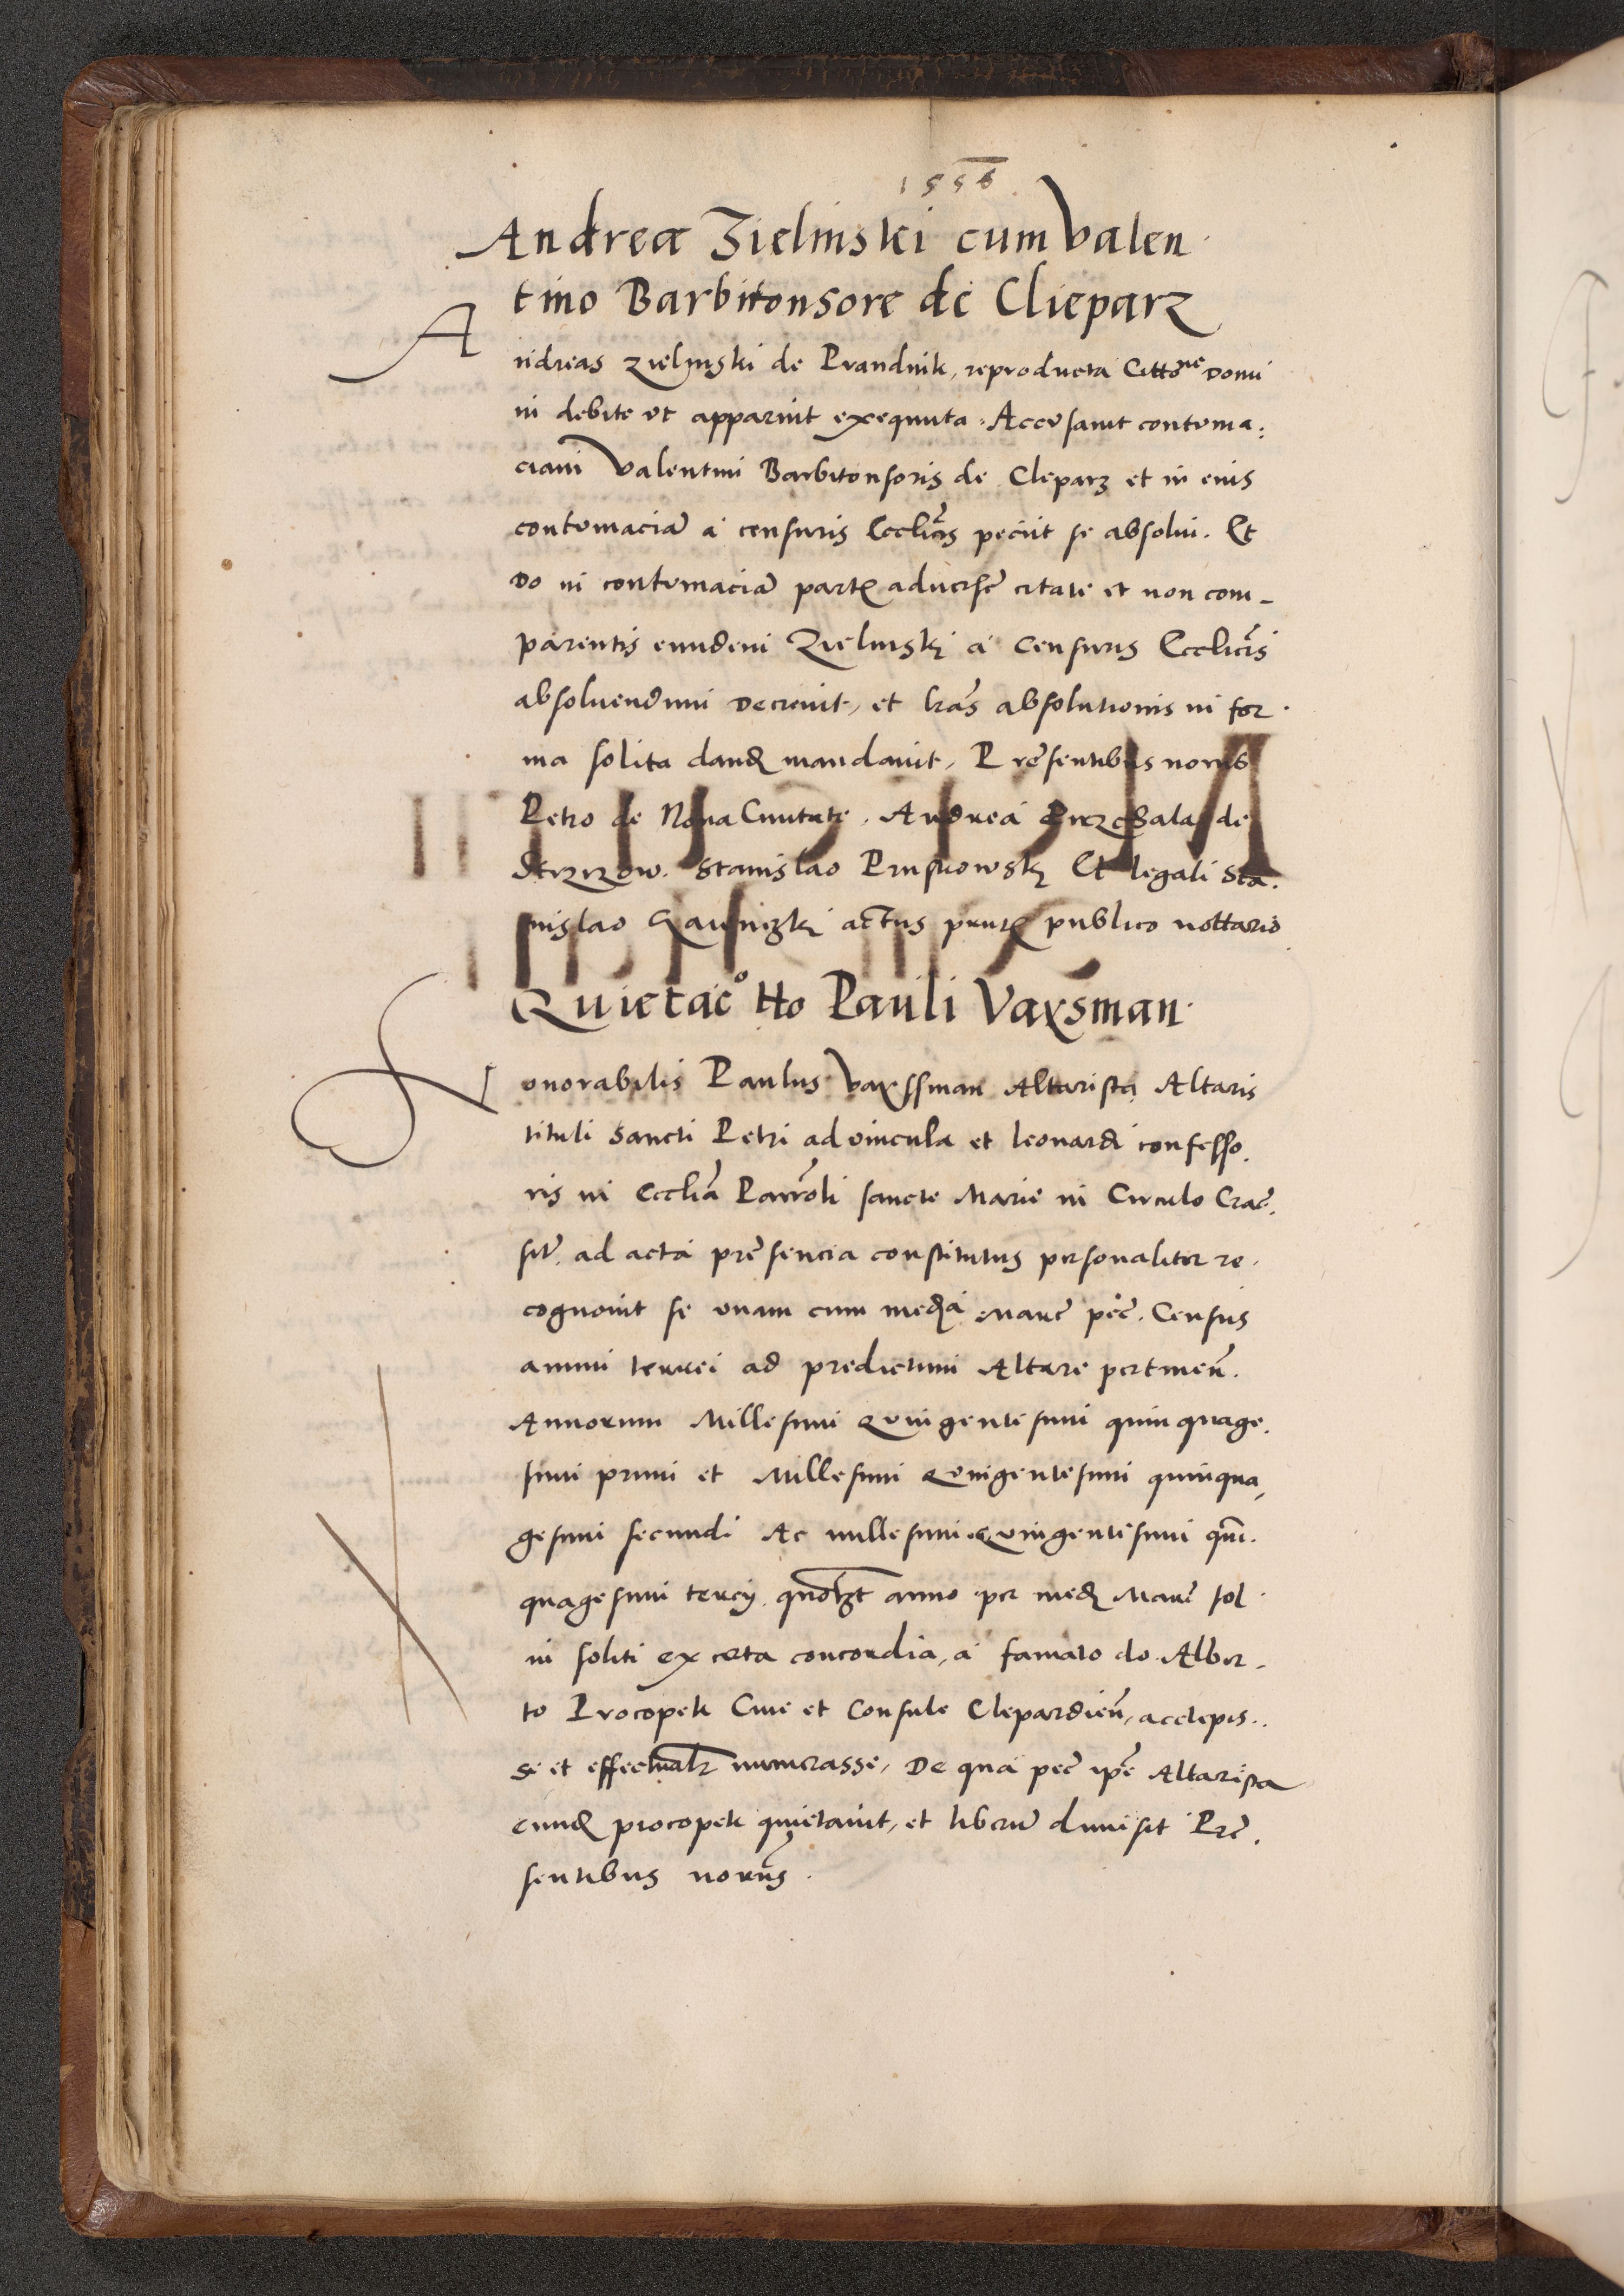 1556
Andreæ Zielinski cum Valen
tino Barbitonsore de Clieparz
Andreas Zielynski de Prandnik, reproducta Cittõne Domi
ni debite ut apparuit exequuta. Accusavit contuma:
ciam Valentini Barbitonsoris de Cleparz et in eius
contumaciã a censuris Eccliĉis peciit se absolui. Et
Do in contumaciã partꝭ aduersẽ citate et non com-
parentis eundem Zielinski a Censuris Eccliĉis
absoluendum Decreuit, et lrãs absolutionis in for
ma solita dandꝭ mandauit, Prẽsentibus
Petro de Noua Ciuitate, Andrea de
Stanislao Et legali Sta.
nislao actus publico nottario
Quietac͠o Ho Pauli Vaxsman
Honorabilis Paulus Vaxssman Altarista Altaris
tituli Sancti Petri ad vincula et leonardi confesso.
ris in Eccliã Sancte Marie in Circulo Crac̃.
sit̃. ad acta prẽsencia constitutus personaliter re.
cognouit se vnam cum media Marc̃ pec̃. Census
annui terrei ad predictum Altare pertineñ.
Annorum Millesimi Quingentesimi quinquage.
simi primi et Millesimi Quingentesimi quinqua,
gesimi secundi Ac millesimi Quingentesimi quĩ.
quagesimi tercij anno per medꝭ Marc̃ sol
ni soliti ex certa concordia, a famato do Alber.
to Procopek Ciue et Consule Clepardieñ, accepis..
se et effectualr̃ numerasse, De qua pec̃ ip̃e Altarista
eundꝭ procopek quietauit, et liberũ dimisit Prẽ.
sentibus